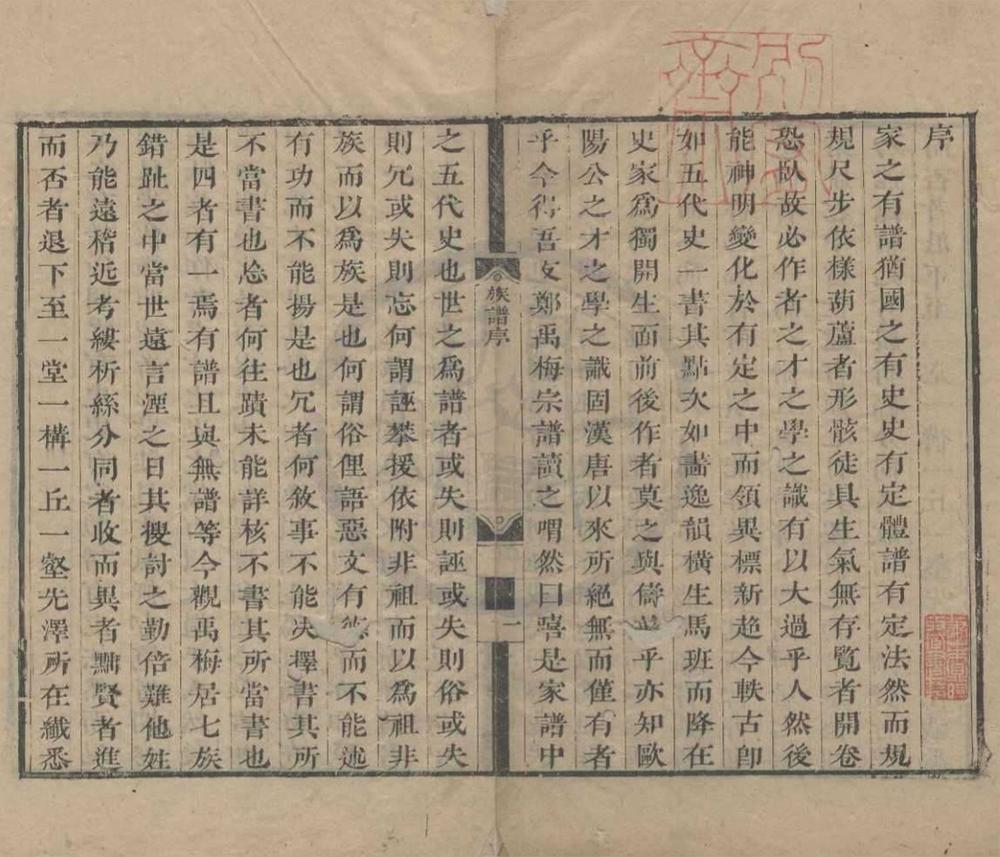 序
家之有譜猶國之有史史有定體譜有定法然而規
規尺步依樣葫蘆者形骸徒具生氣無存覽者開卷
恐臥故必作者之才之學之識有以大過乎人然後
能神明變化於有定之中而領異標新超今軼古卽
如五代史一書其點次如畵逸韻橫生馬班而降在
史家爲獨開生面前後作者莫之與儔 乎亦知歐
陽公之才之學之識固漢唐以來所絕無而僅有者
乎今得吾友鄭禹梅宗譜讀之喟然曰嘻是家譜中
族譜序
一
之五代史也世之爲譜者或失則誣或失則俗或失
則冗或失則忘何謂誣攀援依附非祖而以爲祖非
族而以爲族是也何謂俗俚語惡文有德而不能述
有功而不能揚是也冗者何敘事不能决擇書其所
不當書也忘者何往蹟未能詳核不書其所當書也
是四者有一焉有譜且與無譜等今觀禹梅居七族
錯趾之中當世遠言湮之日其㮴討之勤倍難他姓
乃能遠稽近考縷析絲分同者收而異者黜賢者進
而否者退下至一堂一構一丘一壑先澤所在纖悉